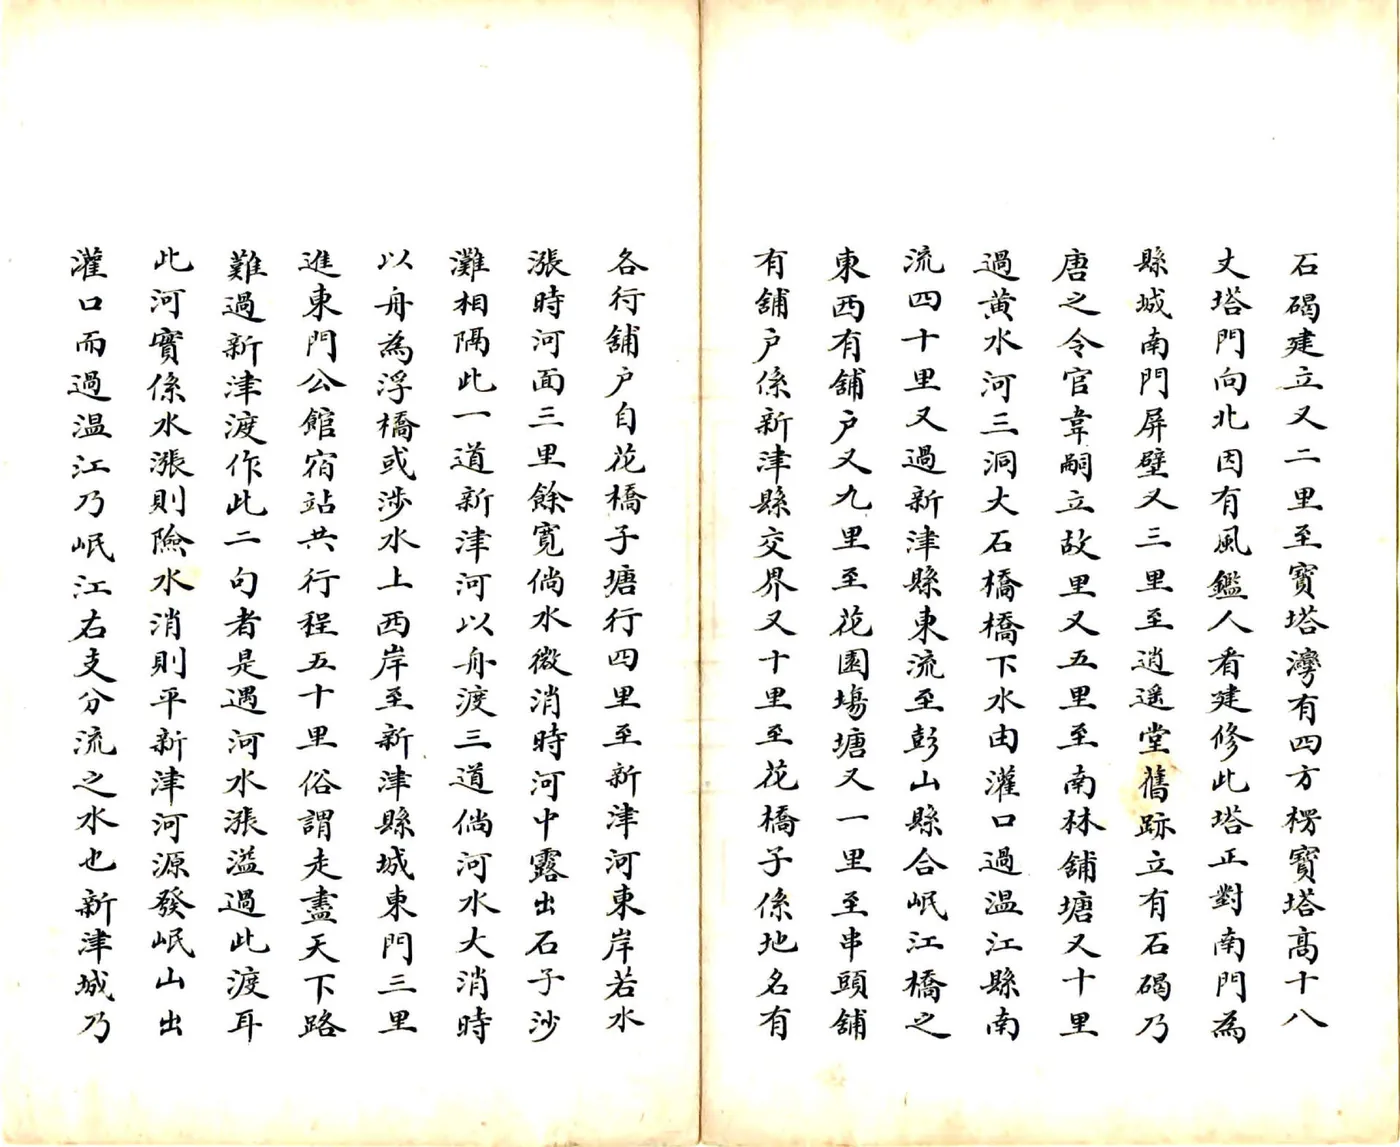 石碣建立又二里至寶塔灣有四方楞寶塔高十八
丈塔門向北因有風鑑人看建修此塔正對南門為
縣城南門屏壁又三里至逍遥堂舊跡立有石碣乃
唐之令官韋嗣立故里又五里至南林舖塘又十里
過黄水河三洞大石橋橋下水由灌口過温江縣南
流四十里又過新津縣東流至彭山縣合岷江橋之
東西有舖户又九里至花園塲塘又一里至串頭舖
有舖户係新津縣交界又十里至花橋子係地名有
各行舖户自花橋子塘行四里至新津河東岸若水
漲時河面三里餘寬倘水微消時河中露出石子沙
灘相隔此一道新津河以舟渡三道倘河水大消時
以舟為浮橋或涉水上西岸至新津縣城東門三里
進東門公館宿站共行程五十里俗謂走盡天下路
難過新津渡作此二句者是遇河水漲溢過此渡耳
此河實係水漲則險水消則平新津河源發岷山出
灌口而過温江乃岷江右支分流之水也新津城乃